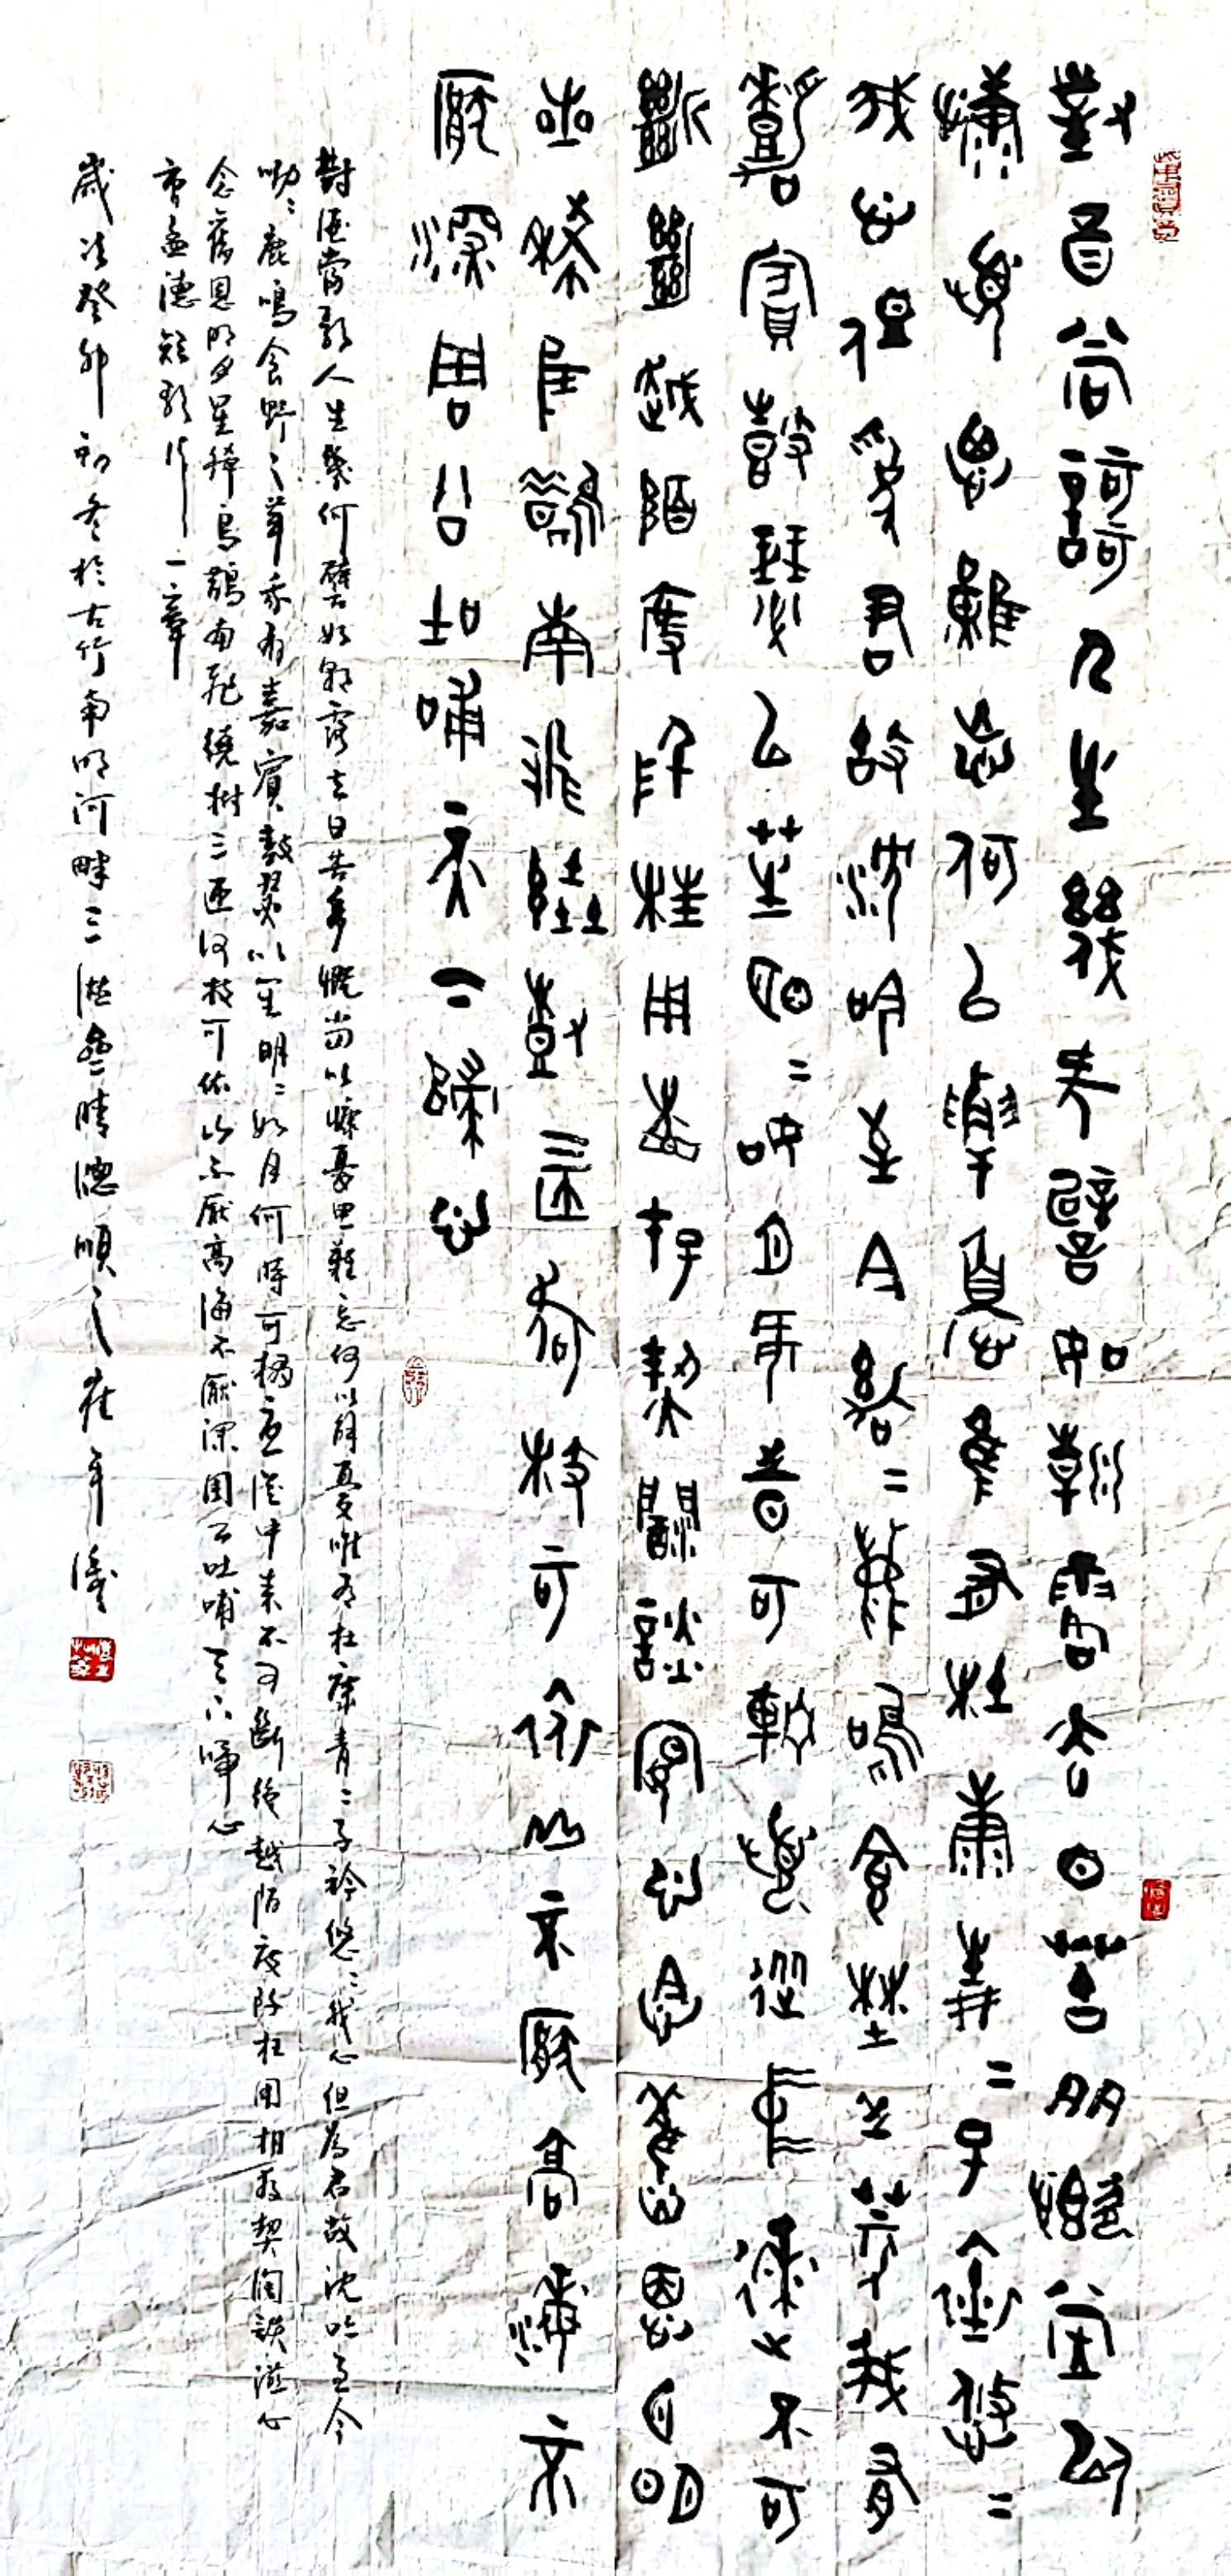 對酒當歌人生幾何譬如朝露去日苦多慨當以
慷憂思難忘何以解憂唯有杜康青二子衿悠二
我心但爲君故沈吟至今呦二鹿鳴食野之苹我有
嘉賓鼓瑟以笙明二如月何時可輟憂從中來不可
斷絕越陌度阡枉用相存契闊談讌心念舊恩月明
星稀烏鵲南飛繞樹三匝何枝可依山不厭高海不
厭深周公吐哺天下歸心
對酒當歌人生幾何譬如朝露去日苦多慨當以慷憂思難忘何以解憂唯有杜康青二子衿悠二我心但爲君故沈吟至今
呦二鹿鳴食野之苹我有嘉賓鼓瑟以笙明二如月何時可掇憂從中來不可斷絕越陌度阡枉用相存契闊談讌心
念舊恩月明星稀烏鵲南飛繞樹三匝何枝可依山不厭高海不厭深周公吐哺天下歸心
曹孟德短歌行一章
歲次癸卯初冬於古竹南明河畔三